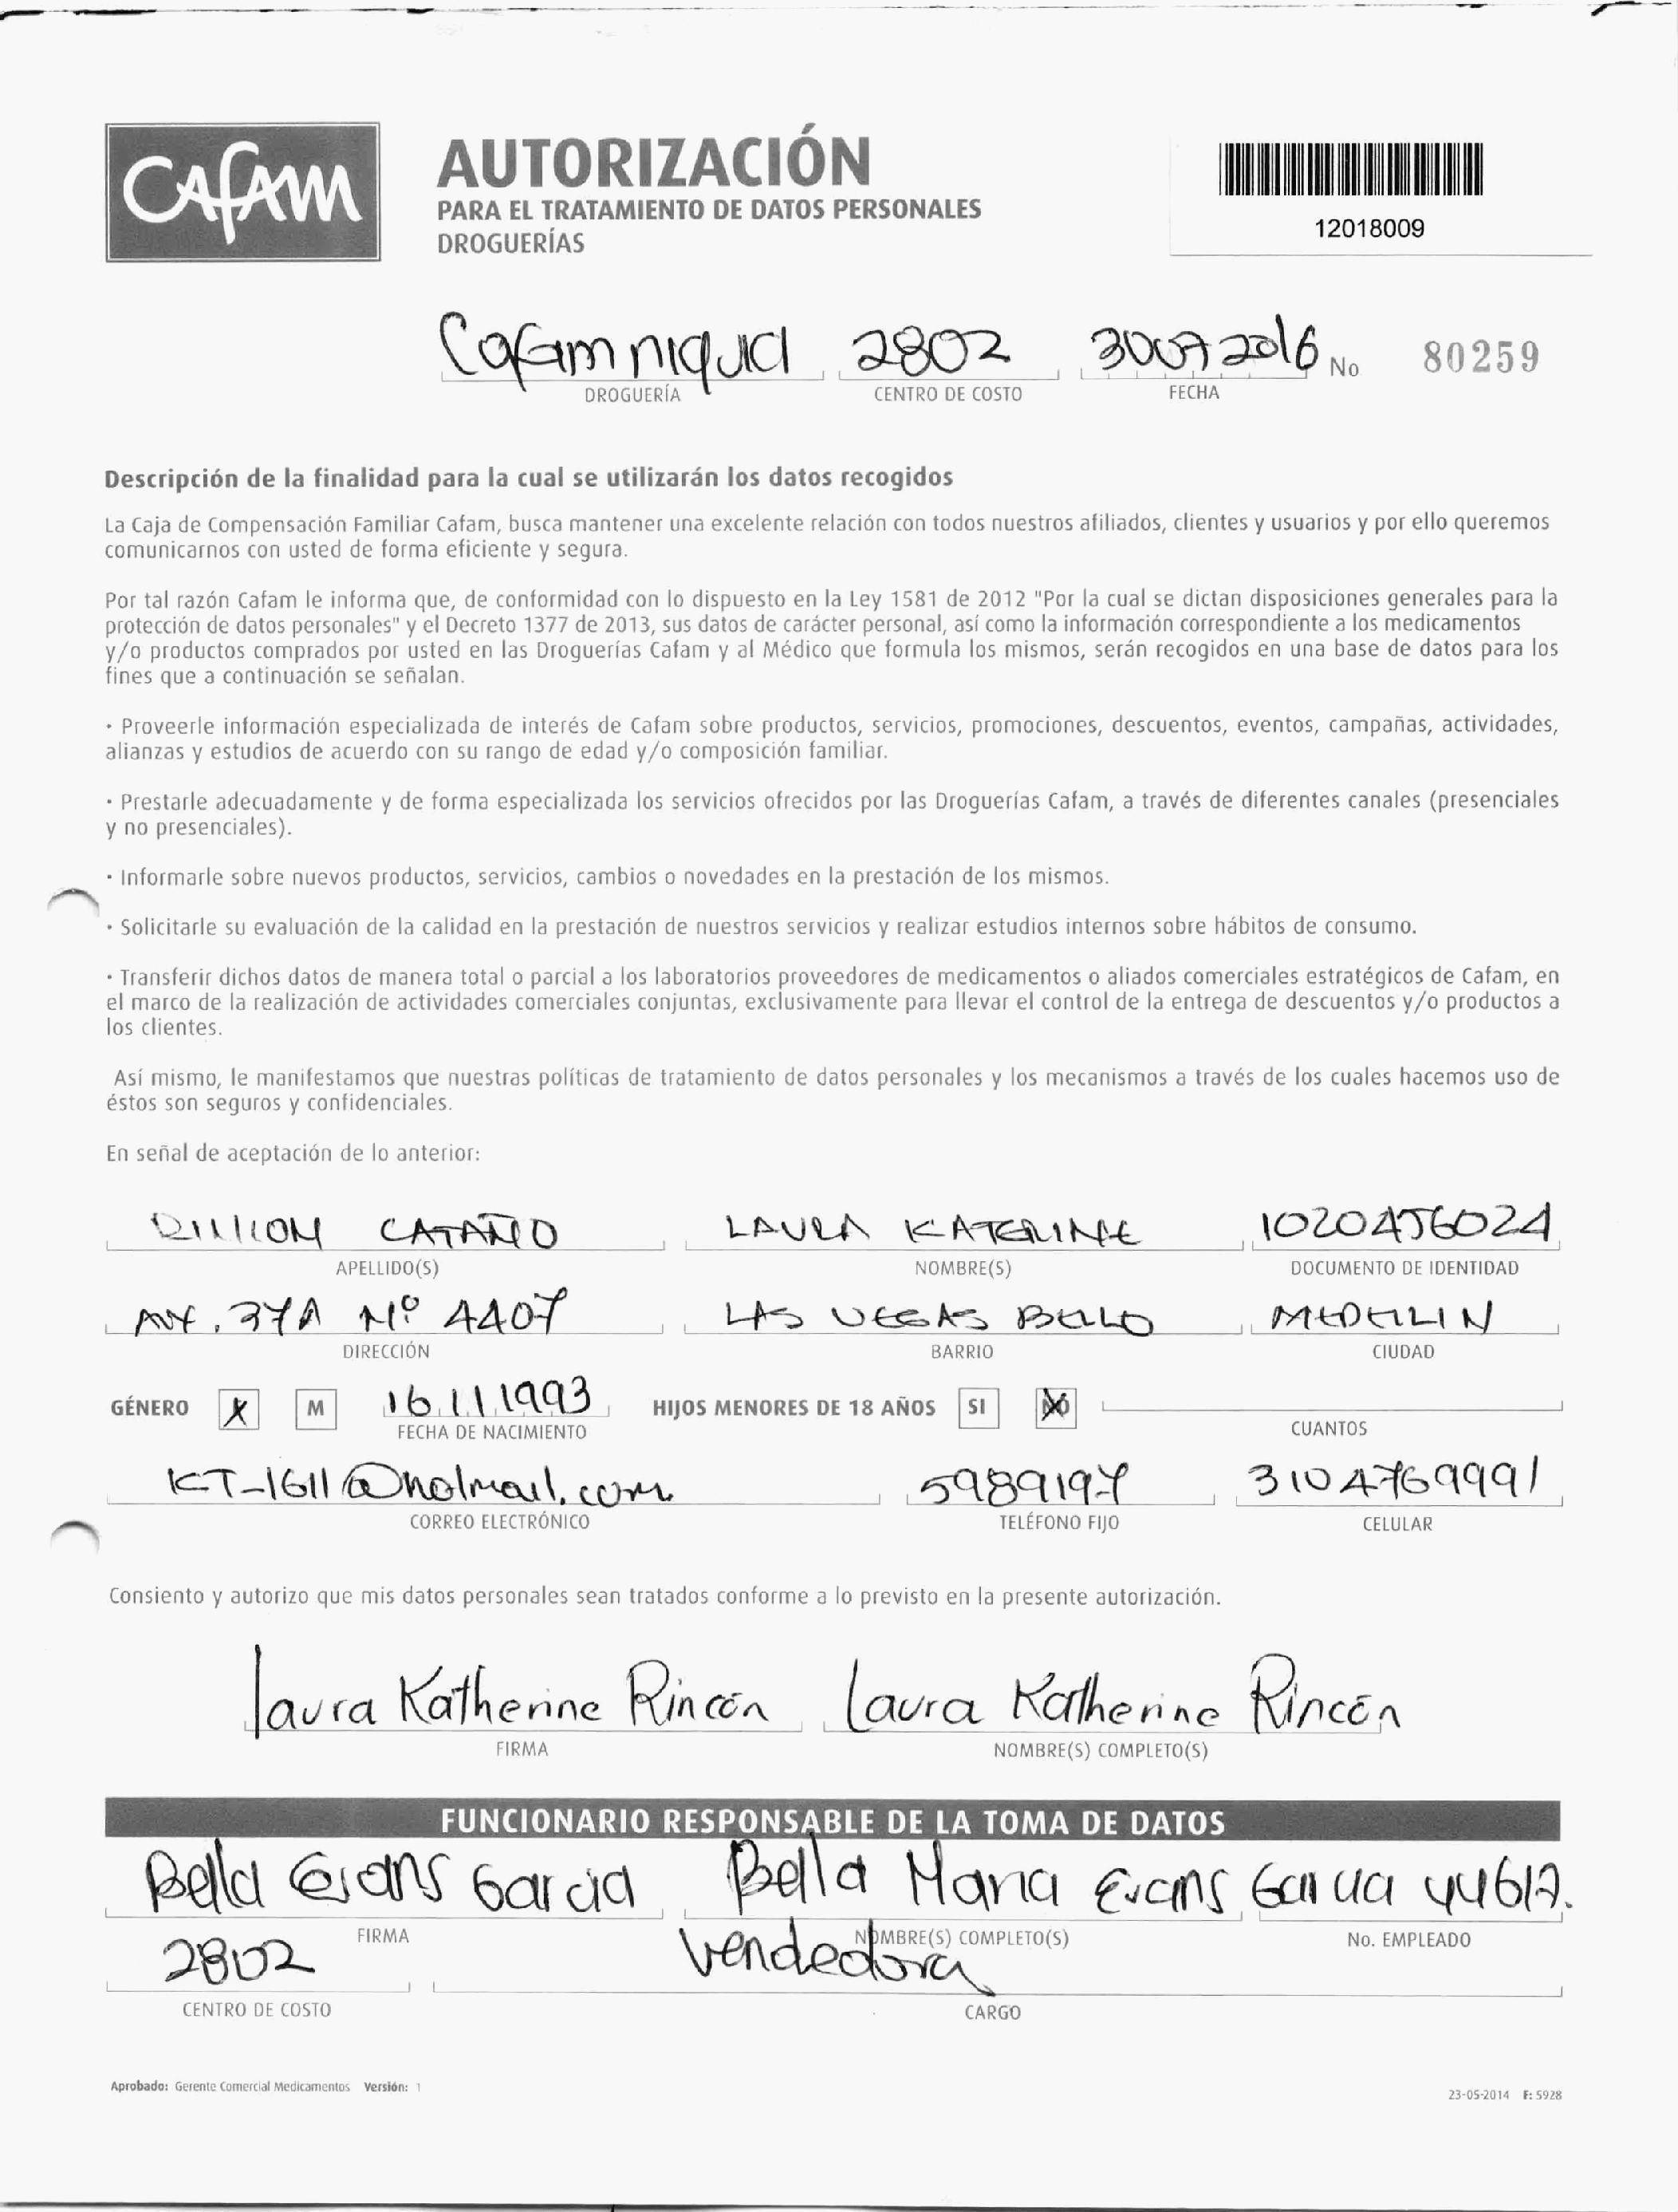 CAFAM
AUTORIZACIÓN
PARA EL TRATAMIENTO DE DATOS PERSONALES
DROGUERÍAS
12018009
Cafam niquia 2802 30072016 No 80259
DROGUERÍA CENTRO DE COSTO FECHA
Descripción de la finalidad para la cual se utilizarán los datos recogidos
La Caja de Compensación Familiar Cafam, busca mantener una excelente relación con todos nuestros afiliados, clientes y usuarios y por ello queremos
comunicarnos con usted de forma eficiente y segura.
Por tal razón Cafam le informa que, de conformidad con lo dispuesto en la Ley 1581 de 2012 "Por la cual se dictan disposiciones generales para la
protección de datos personales" y el Decreto 1377 de 2013, sus datos de carácter personal, así como la información correspondiente a los medicamentos
y/o productos comprados por usted en las Droguerías Cafam y al Médico que formula los mismos, serán recogidos en una base de datos para los
fines que a continuación se señalan.
· Proveerle información especializada de interés de Cafam sobre productos, servicios, promociones, descuentos, eventos, campañas, actividades,
alianzas y estudios de acuerdo con su rango de edad y/o composición familiar.
· Prestarle adecuadamente y de forma especializada los servicios ofrecidos por las Droguerías Cafam, a través de diferentes canales (presenciales
y no presenciales).
· Informarle sobre nuevos productos, servicios, cambios o novedades en la prestación de los mismos.
· Solicitarle su evaluación de la calidad en la prestación de nuestros servicios y realizar estudios internos sobre hábitos de consumo.
· Transferir dichos datos de manera total o parcial a los laboratorios proveedores de medicamentos o aliados comerciales estratégicos de Cafam, en
el marco de la realización de actividades comerciales conjuntas, exclusivamente para llevar el control de la entrega de descuentos y/o productos a
los clientes.
Así mismo, le manifestamos que nuestras políticas de tratamiento de datos personales y los mecanismos a través de los cuales hacemos uso de
éstos son seguros y confidenciales.
En señal de aceptación de lo anterior:
CATAÑO LAURA KATERINE 1020456024
APELLIDO(S) NOMBRE(S) DOCUMENTO DE IDENTIDAD
37A Nº 4407 LAS VEGAS BELLO MEDELLIN
DIRECCIÓN BARRIO CIUDAD
GÉNERO X M 16 11 1993 HIJOS MENORES DE 18 AÑOS SI NO
FECHA DE NACIMIENTO CUANTOS
KT-1611@hotmail.com 5989197 3104769991
CORREO ELECTRÓNICO TELÉFONO FIJO CELULAR
Consiento y autorizo que mis datos personales sean tratados conforme a lo previsto en la presente autorización.
Laura Katherine Rincón Laura Katherine Rincón
FIRMA NOMBRE(S) COMPLETO(S)
FUNCIONARIO RESPONSABLE DE LA TOMA DE DATOS
Bella Evans Garcia Bella Maria Evans Garcia 44617.
FIRMA NOMBRE(S) COMPLETO(S) No. EMPLEADO
2802 Vendedora
CENTRO DE COSTO CARGO
Aprobado: Gerente Comercial Medicamentos Versión: 1
23-05-2014 F: 5928